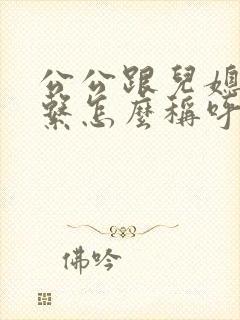 公公跟兒媳
繫怎麼稱呼
佛吟